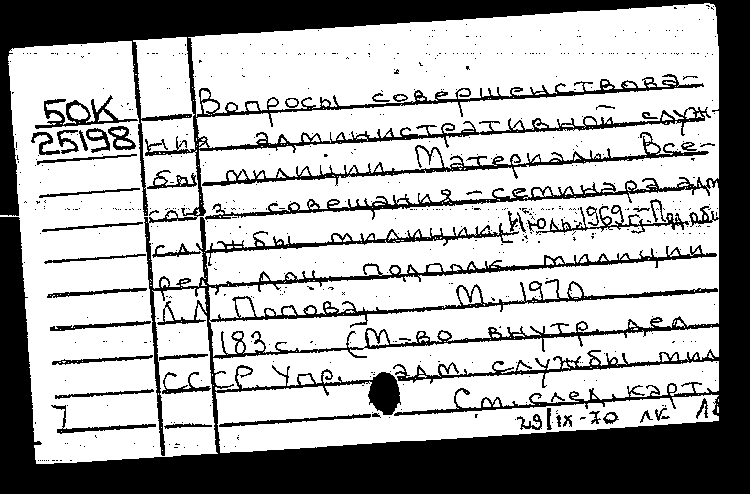 50К
25198
Вопросы совершенствова-
ния административной служ-
бы милиции. Материалы Все-
союз. совещания-семинара адм
службы милиции, Июль 1969 г. Под общ
ред. доц. подполк милиции
Л.Л. Попова. М., 1970
183 с. (М-во внутр. дел
СССР. Упр. адм. службы мил
См. след. карт.
7
29/IX-70 лк